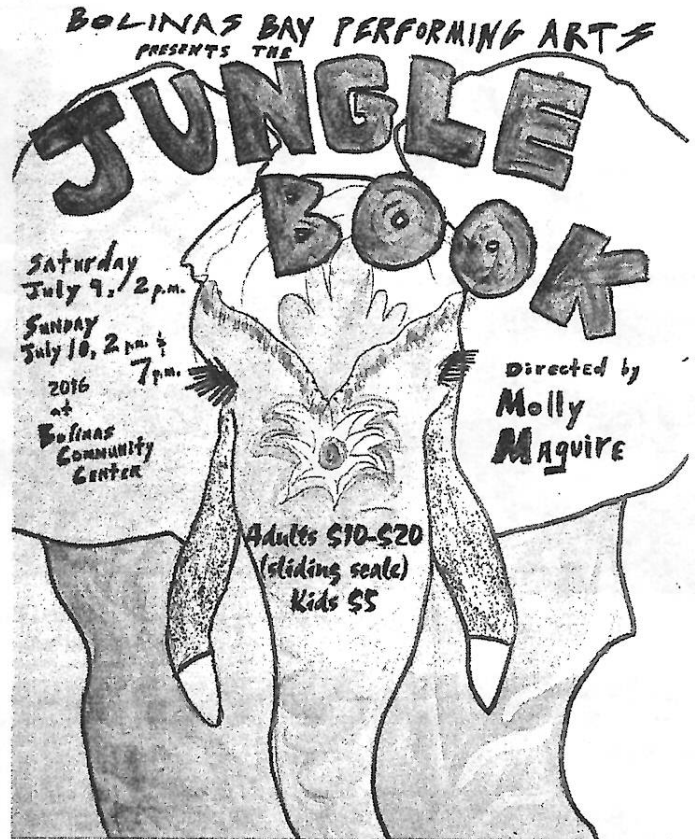 BOLINAS BAY PERFORMING ARTS
PRESENTS THE
JUNGLE
BOOK
Saturday
July 9, 2 p.m.
SUNDAY
July 10, 2 p.m. &
7 p.m.
2016
at
Bolinas
COMMUNITY
CENTER
Directed by
Molly
MAguiRE
Adults $10-$20
(sliding scale)
Kids $5